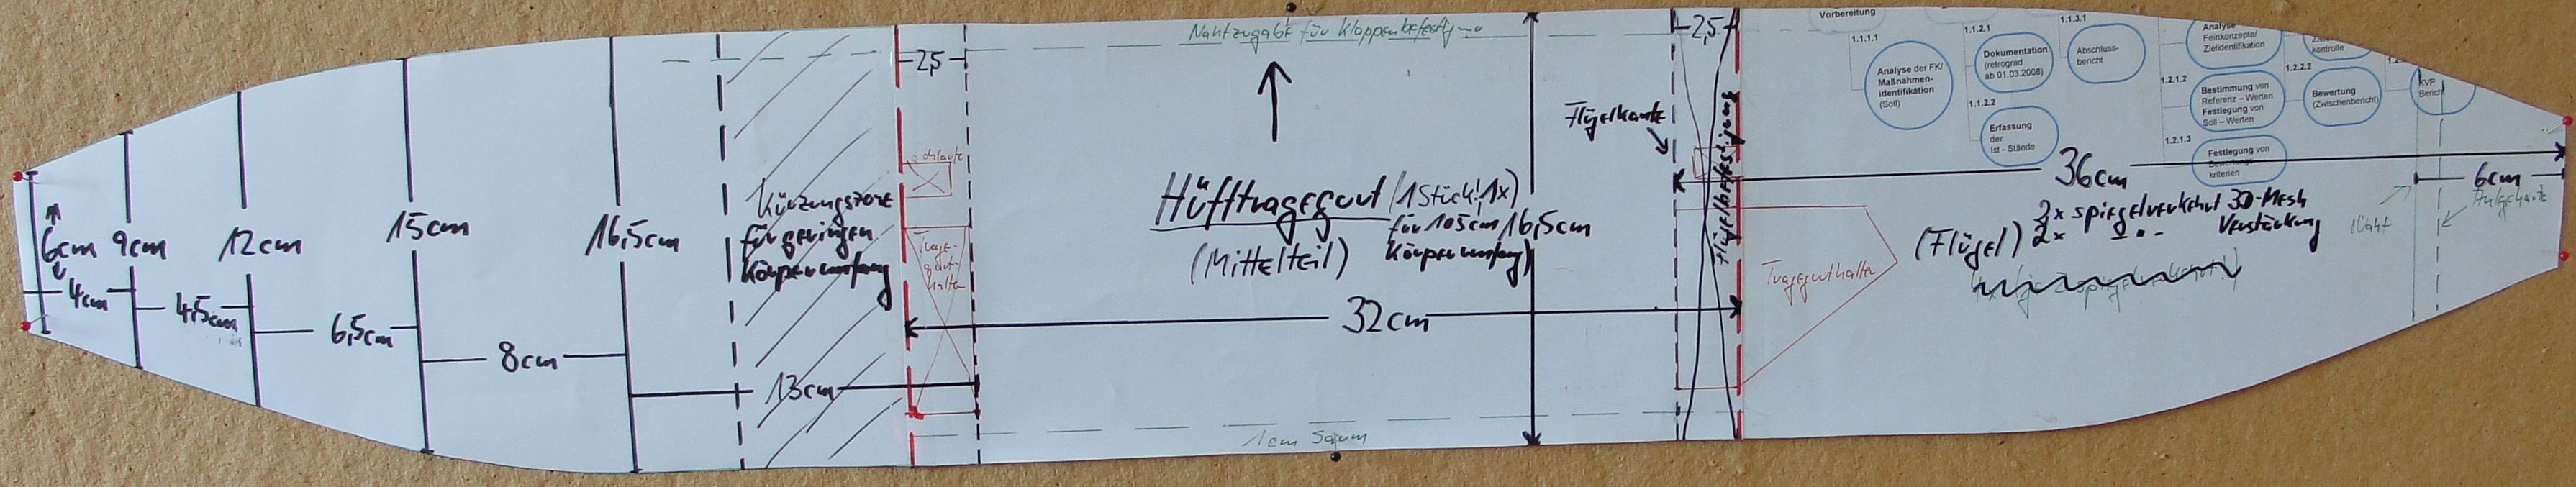 6cm
9cm
12cm
15cm
16,5cm
4cm
4,5cm
6,5cm
8cm
13cm
Kürzungszone
für geringen
Körperumfang
2,5
Schlaufe
Trage-
gurt-
halter
Nahtzugabe für Klappenbefestigung
Hüfttragegurt (1 Stück! 1x)
für 105cm
Körperumfang)
(Mittelteil)
16,5cm
32cm
1cm Saum
Flügelkante
2,5
Flügelbefestigung
Tragegurthalter
36cm
(Flügel)
2x spiegelverkehrt 3D-Mesh
2x - " - Verstärkung
6cm
Naht
Vorbereitung
1.1.1.1
Analyse der FK/
Maßnahmen-
identifikation
(Soll)
1.1.2.1
Dokumentation
(retrograd
ab 01.03.2008)
1.1.2.2
Erfassung
der
Ist - Stände
1.1.3.1
Abschluss-
bericht
Analyse
Feinkonzepte/
Zielidentifikation
1.2.1.2
Bestimmung von
Referenz – Werten
Festlegung von
Soll – Werten
1.2.1.3
Festlegung von
Bewertungs-
kriterien
kontrolle
1.2.2.2
Bewertung
(Zwischenbericht)
KVP
Bericht